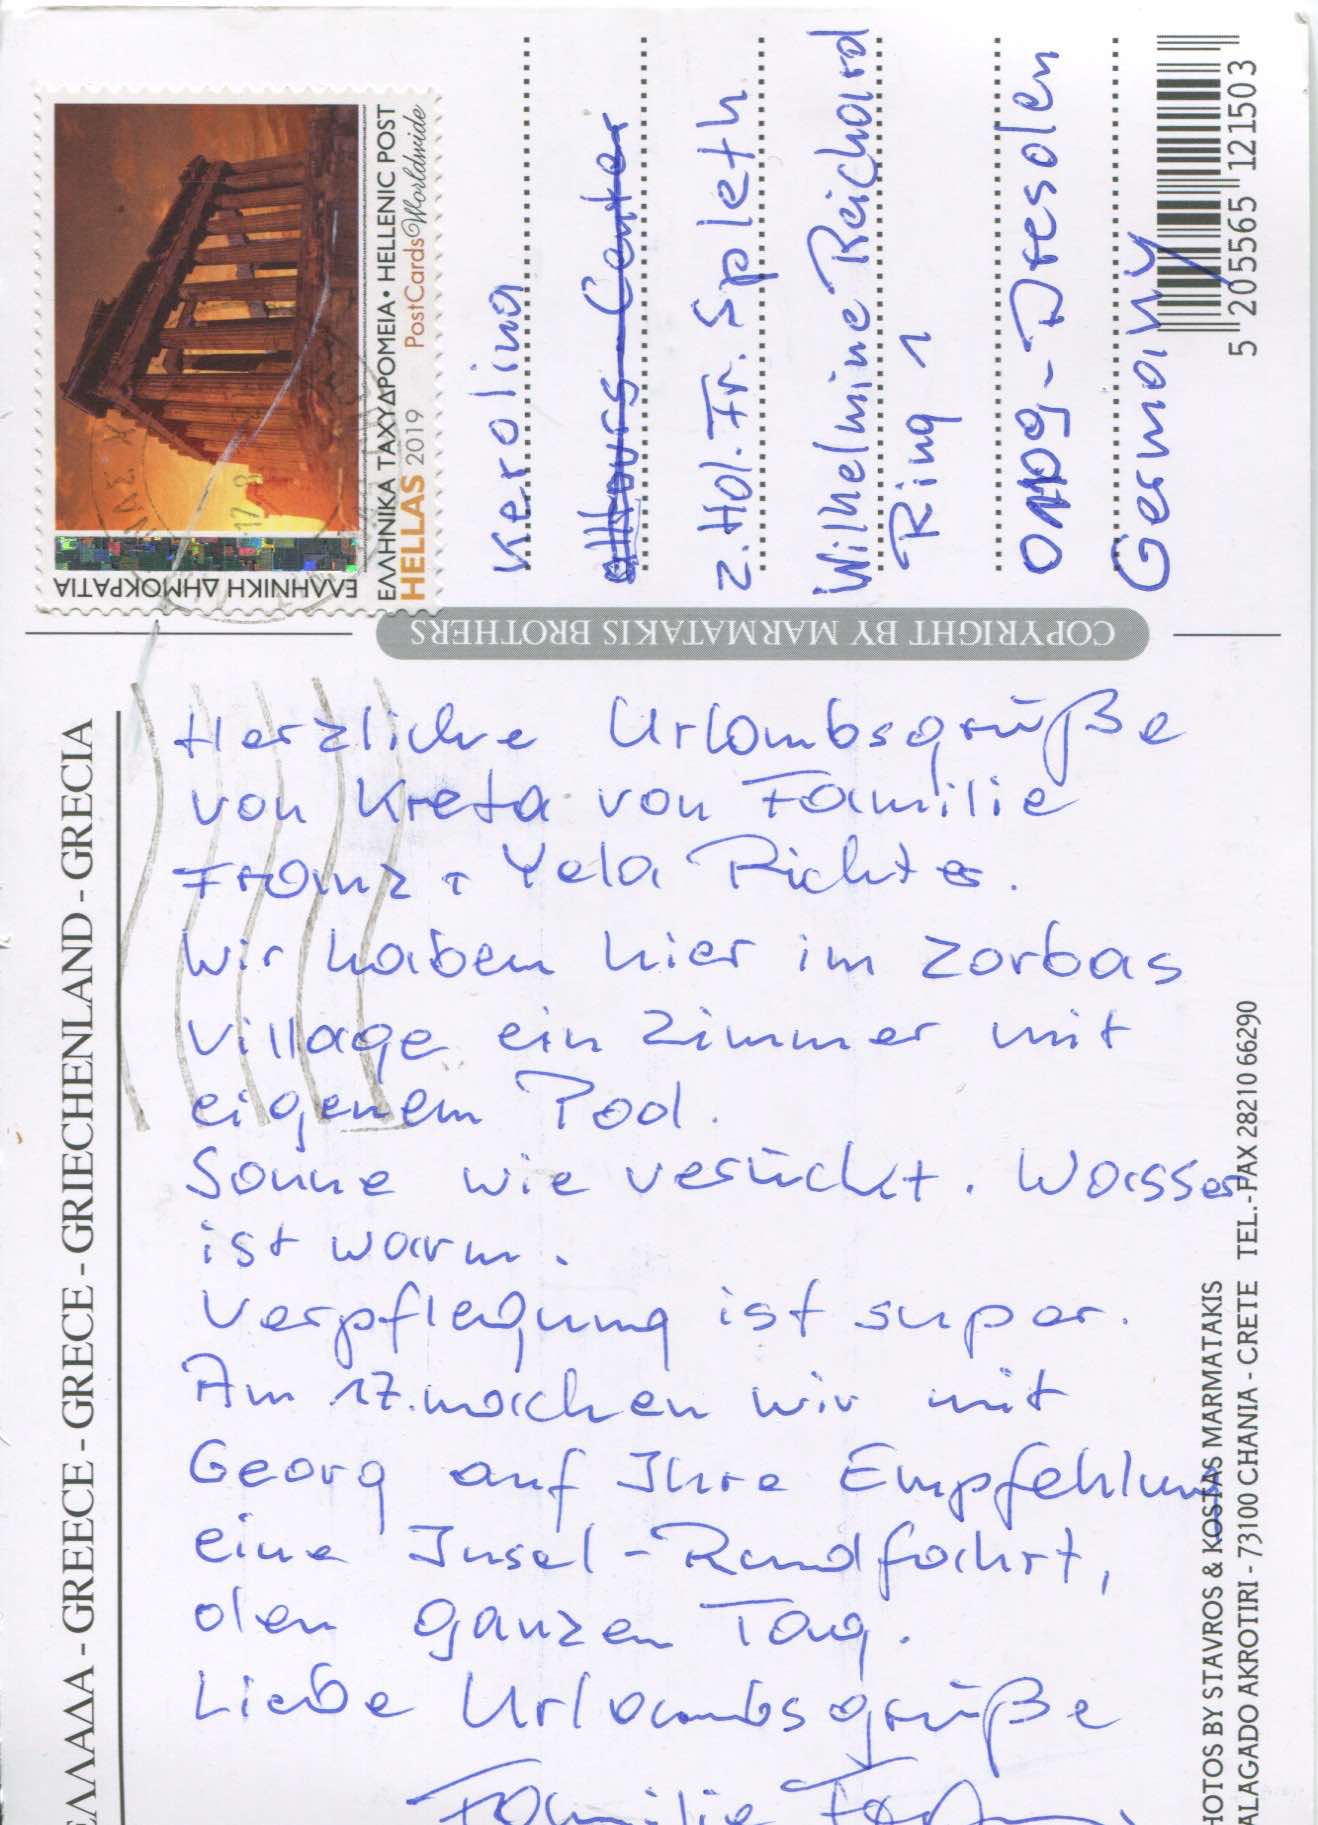 ΕΛΛΗΝΙΚΗ ΔΗΜΟΚΡΑΤΙΑ
ΕΛΛΗΝΙΚΑ ΤΑΧΥΔΡΟΜΕΙΑ • HELLENIC POST
HELLAS 2019 PostCards Worldwide
Kerolina
z. Hd. Fr. Spleth
Wilhelmine Reichard
Ring 1
Dresden
Germany
5 205565 121503
COPYRIGHT BY MARMATAKIS BROTHERS
ΕΛΛΑΔΑ - GREECE - GRECE - GRIECHENLAND - GRECIA
Herzliche Urlaubsgrüße
von Kreta von Familie
Franz + Yela Richter.
Wir haben hier im Zorbas
Village ein Zimmer mit
eigenem Pool.
Sonne wie verückt. Wasser
ist warm.
Verpflegung ist super.
Am 17. machen wir mit
Georg auf Ihre Empfehlung
eine Insel-Rundfahrt,
den ganzen Tag.
Liebe Urlaubsgrüße
Familie
HOTOS BY STAVROS & KOSTAS MARMATAKIS
ALAGADO AKROTIRI - 73100 CHANIA - CRETE TEL.-FAX 28210 66290